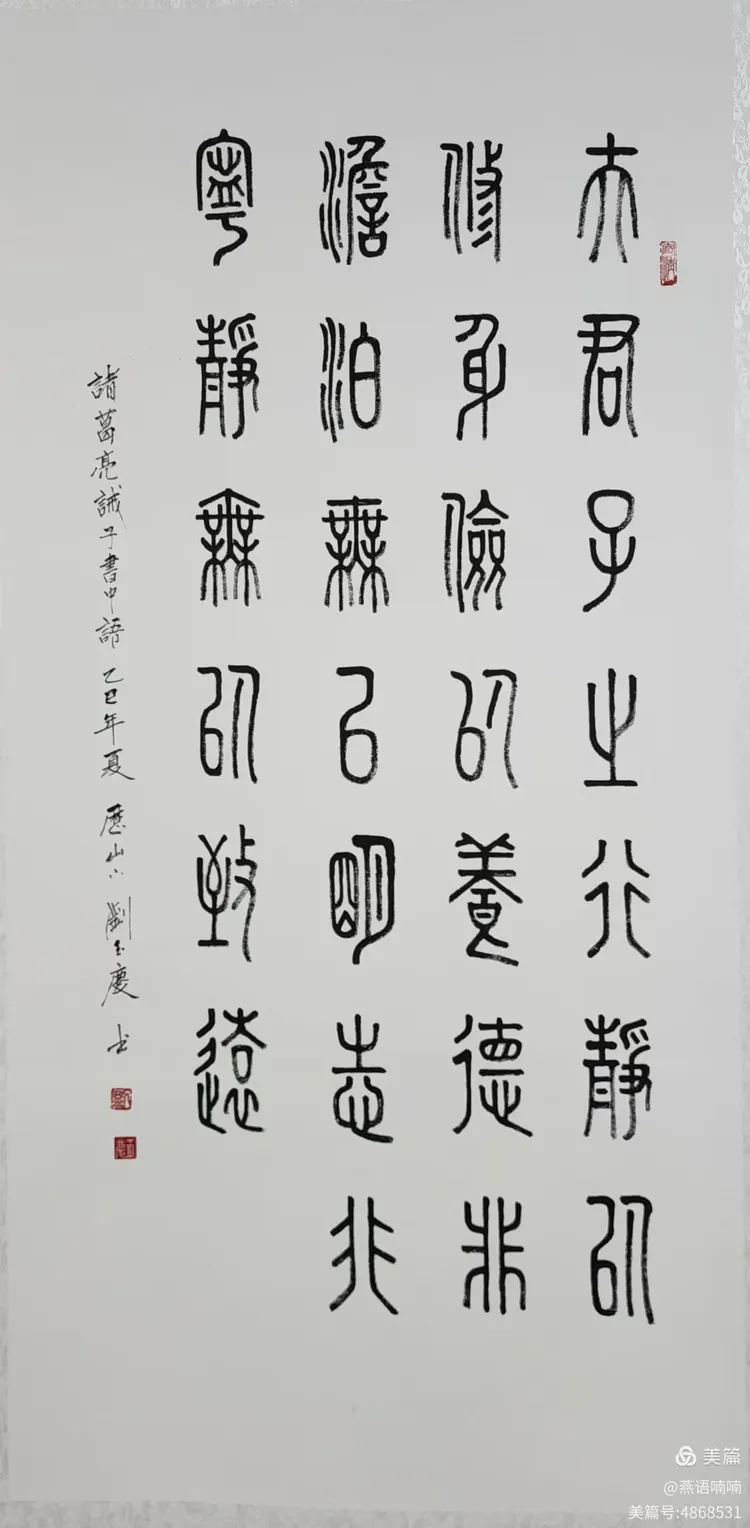 夫君子之行靜以
修身儉以養德非
澹泊無以明志非
寧靜無以致遠
諸葛亮誡子書中語 乙巳年夏 歷山下 劉玉慶 书
美篇
@燕语喃喃
美篇号:4868531